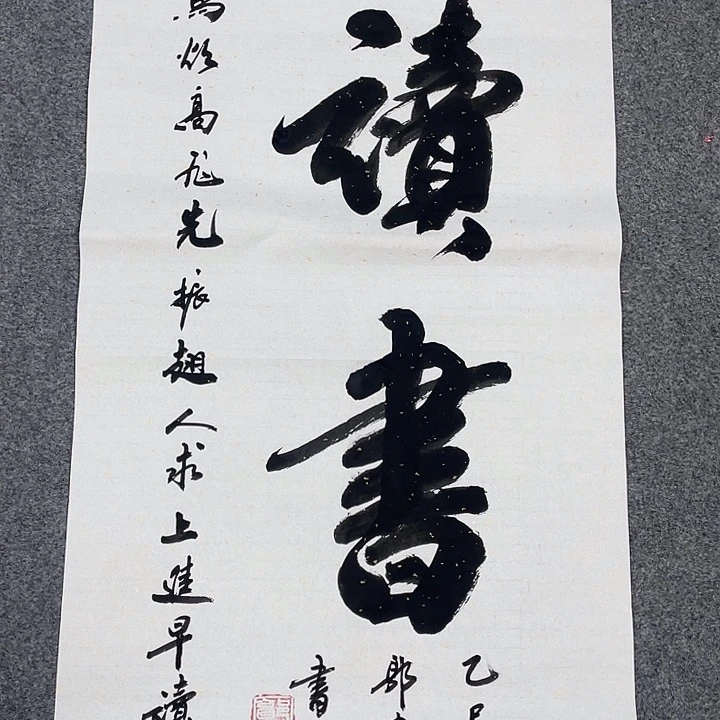 讀書
鳥欲高飛先振翅人求上進早讀
乙巳
郎
書